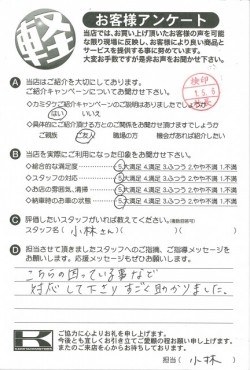 軽
お客様アンケート
当店では、お買上げ頂いたお客様の声を可能
な限り現場に反映し、お客様により良い商品と
サービスを提供する事に努めています。
大変お手数ですが是非お声をお聞かせ下さい。
A 当店はご紹介を大切にしております。
ご紹介キャンペーンについてお聞かせ下さい。
検印
1.5.6
❖カミタケご紹介キャンペーンのご説明はありましたでしょうか
はい いいえ
❖具体的にご紹介頂ける方とのご関係をお聞かせ頂けますでしょうか
ご親族 ご友人 職場の方 機会があれば紹介したい
B 当店を実際にご利用になった印象をお聞かせ下さい。
❖総合的な満足度 5.大満足 4.満足 3.ふつう 2.やや不満 1.不満
❖スタッフの対応 5.大満足 4.満足 3.ふつう 2.やや不満 1.不満
❖お店の雰囲気、清掃 5.大満足 4.満足 3.ふつう 2.やや不満 1.不満
❖納車時のお車の状態 5.大満足 4.満足 3.ふつう 2.やや不満 1.不満
C 評価したいスタッフがいれば教えてください。(複数回答可)
スタッフ名( 小林さん )( )
D 担当させて頂きましたスタッフへのご指摘、ご指導メッセージを
お願いします。応援メッセージもぜひお願いします。
こちらの困っている事などで
対応して下さりすごく助かりました。
K
ご協力に心よりお礼を申し上げます。
今後とも宜しくお引き立てご愛顧の程お願い申し上げます。
またのご来店を心からお待ちしております。
担当( 小林 )